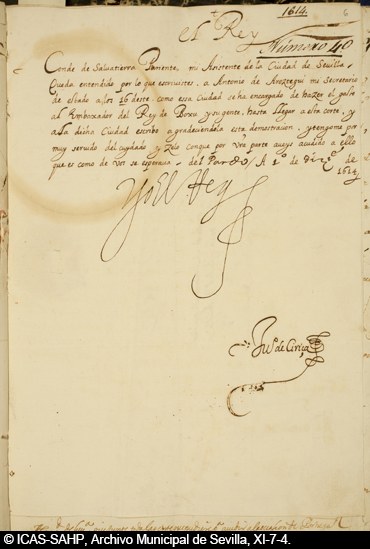 1614
6
El Rey
Número 40
Conde de Salvatierra Pariente, mi Asistente de la Ciudad de Sevilla
Queda entendido por lo que escriuistes, a Antonio de Aroztegui mi Secretario
de estado a los 26 deste como essa Ciudad se ha encargado de hazer el gasto
al Embaxador del Rey de Boxu y su gente, hasta llegar a esta corte, y
a la dicha Ciudad escribo agradeciendola esta demostracion, y tengome por
muy seruido del cuydado y zelo conque por vra parte aueys acudido a ello
que es como de vos se esperaua, del Pardo, A 1º de Dizº de
1614
Yo El Rey
Juº de Ciriça
© ICAS-SAHP, Archivo Municipal de Sevilla, XI-7-4.